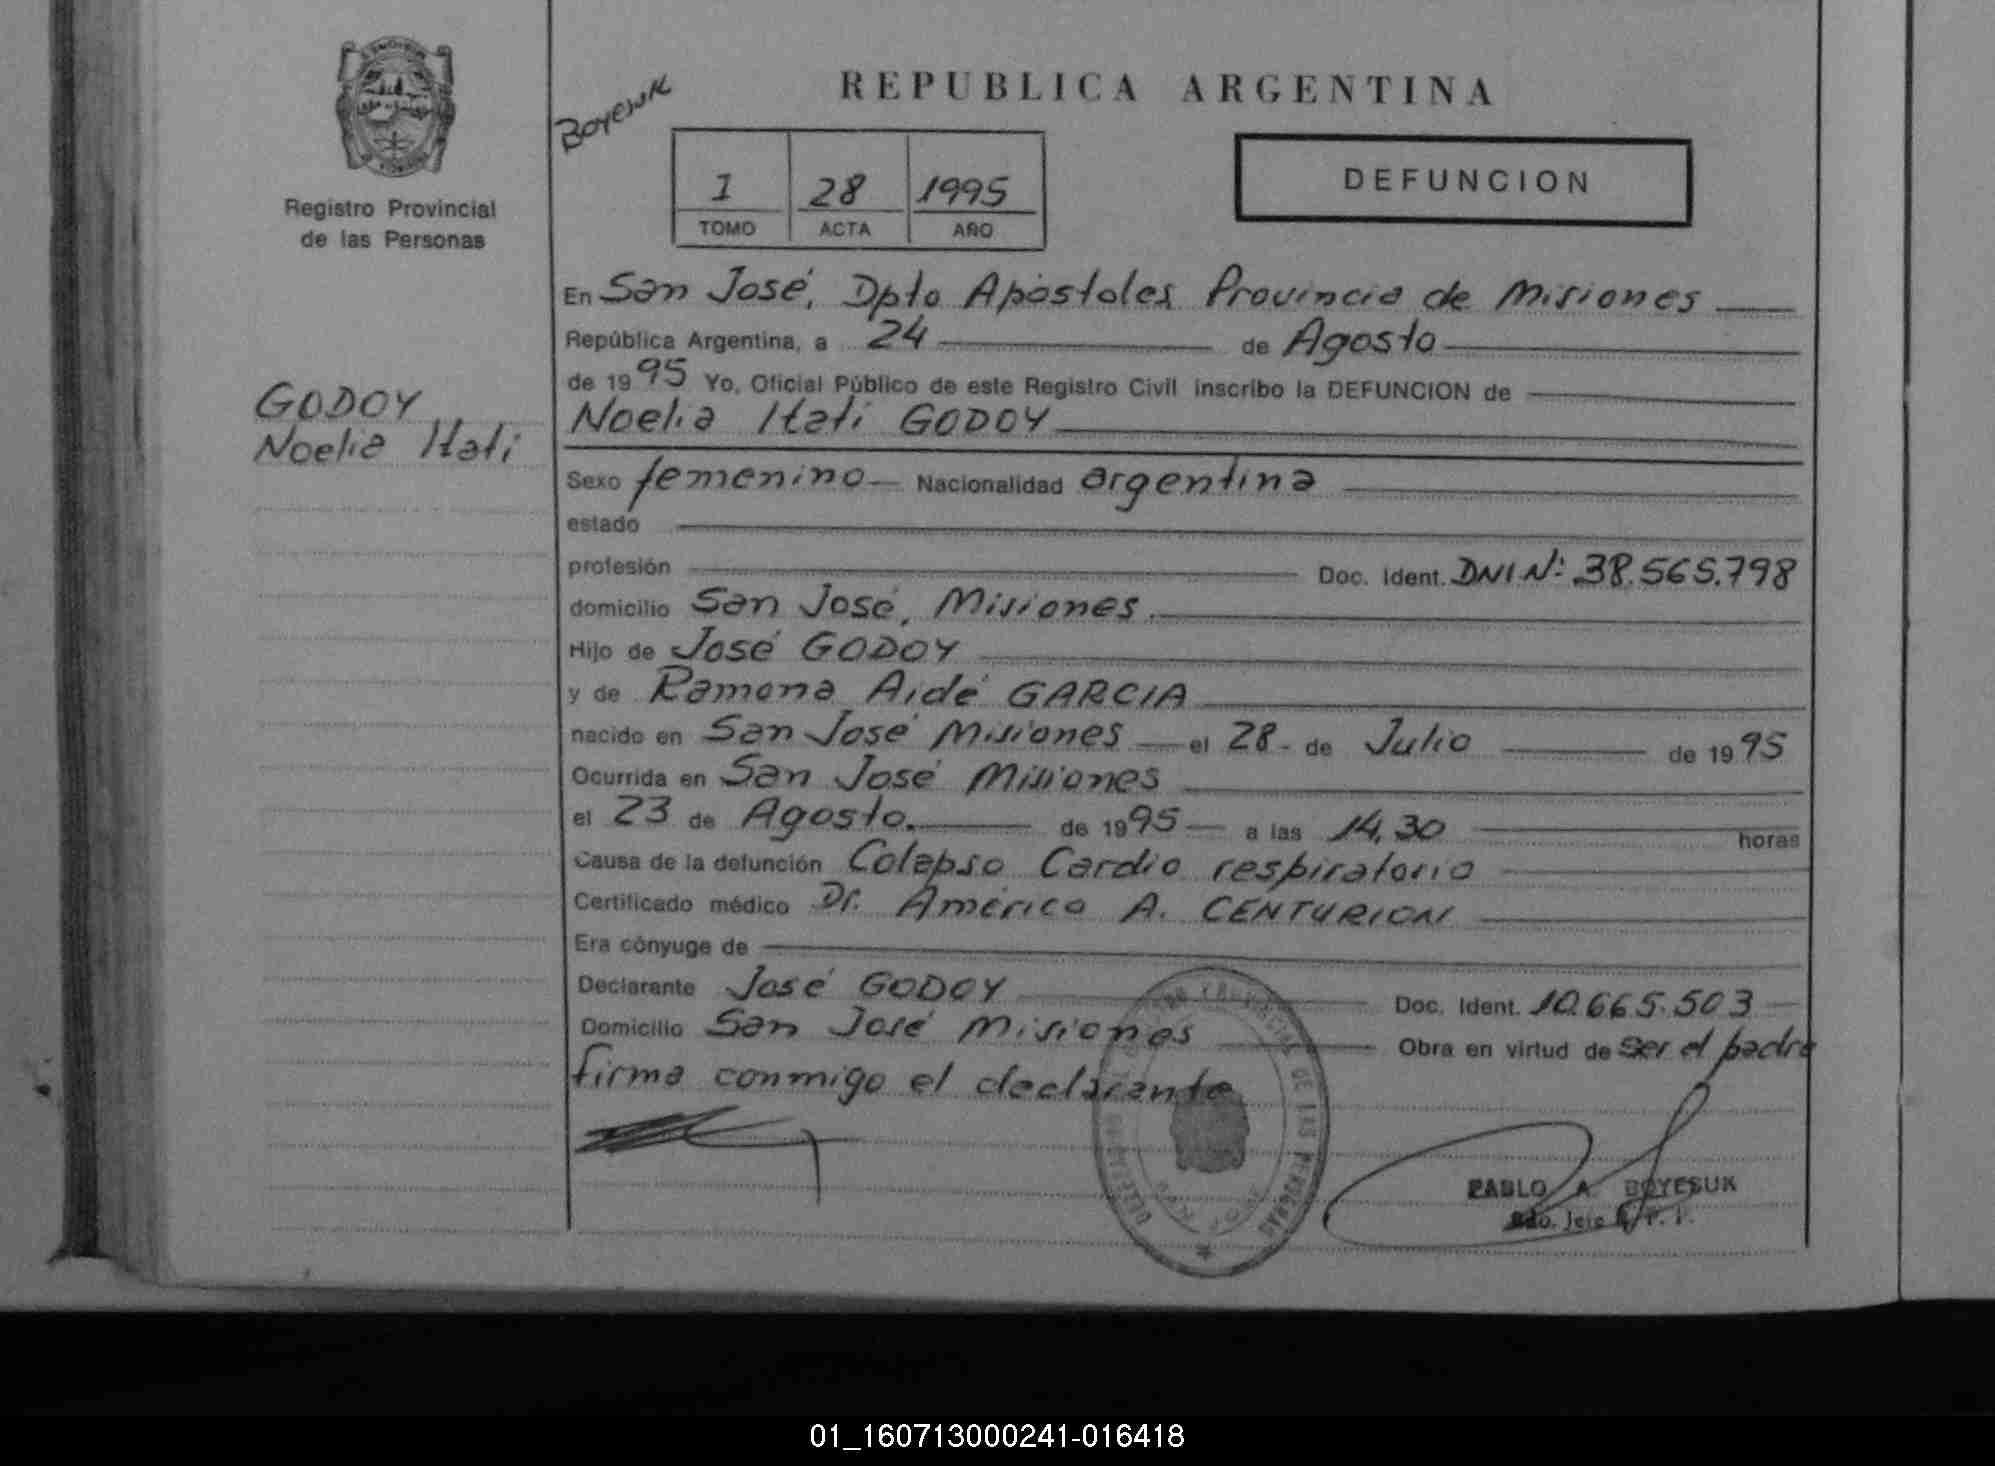 REPUBLICA ARGENTINA
BOYESUK
Registro Provincial
de las Personas
1 28 1995
TOMO ACTA AÑO
DEFUNCION
En San José, Dpto Apóstoles Provincia de Misiones
República Argentina, a 24 de Agosto
de 1995 Yo, Oficial Público de este Registro Civil inscribo la DEFUNCION de
GODOY
Noelia Itatí
Noelia Itatí GODOY
Sexo femenino Nacionalidad argentina
estado
profesión Doc. Ident. DNI Nº: 38.565.798
domicilio San José, Misiones.
Hijo de José GODOY
y de Ramona Aidé GARCIA
nacido en San José Misiones el 28 - de Julio de 1995
Ocurrida en San José Misiones
el 23 de Agosto. de 1995 a las 14,30 horas
Causa de la defunción Colapso Cardio respiratorio
Certificado médico Dr. Américo A. CENTURION
Era cónyuge de
Declarante José GODOY Doc. Ident. 10.665.503
Domicilio San José Misiones Obra en virtud de ser el padre
firma conmigo el declarante
PROVINCIAL DE LAS PERSONAS
SAN JOSE
PABLO A. BOYESUK
01_160713000241-016418